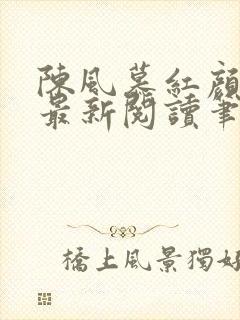 陳風慕紅顏
最新閱讀筆
橋上風景獨好